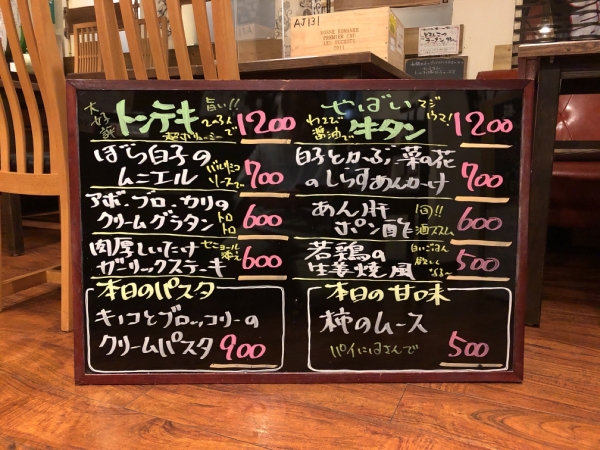 AJ131
大好評 トンテキ 旨い!! 1200
ぼら白子の
ムニエル ソースで 700
アボ・ブロッカリの
クリームグラタン トロトロ 600
肉厚しいたけ
ガーリックステーキ 添え 600
本日のパスタ
キノコとブロッコリーの
クリームパスタ 900
やばい マジ ウマ!
わさびで 醤油で 牛タン 1200
白子とかぶ、菜の花
のしらすあんかけ 700
あん肝
ポン酢 600
若鶏の 白いごはん
生姜焼風 欲しく なる〜 500
本日の甘味
柿のムース
パイにはさんで 500